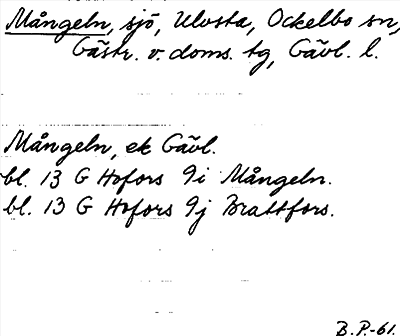 Mångeln, sjö, Ulvsta, Ockelbo sn,
Gästr. v. doms. tg, Gävl. l.
Mångeln, ek Gävl.
bl. 13 G Hofors 9i Mångeln.
bl. 13 G Hofors 9j Brattfors.
B.P.-61.